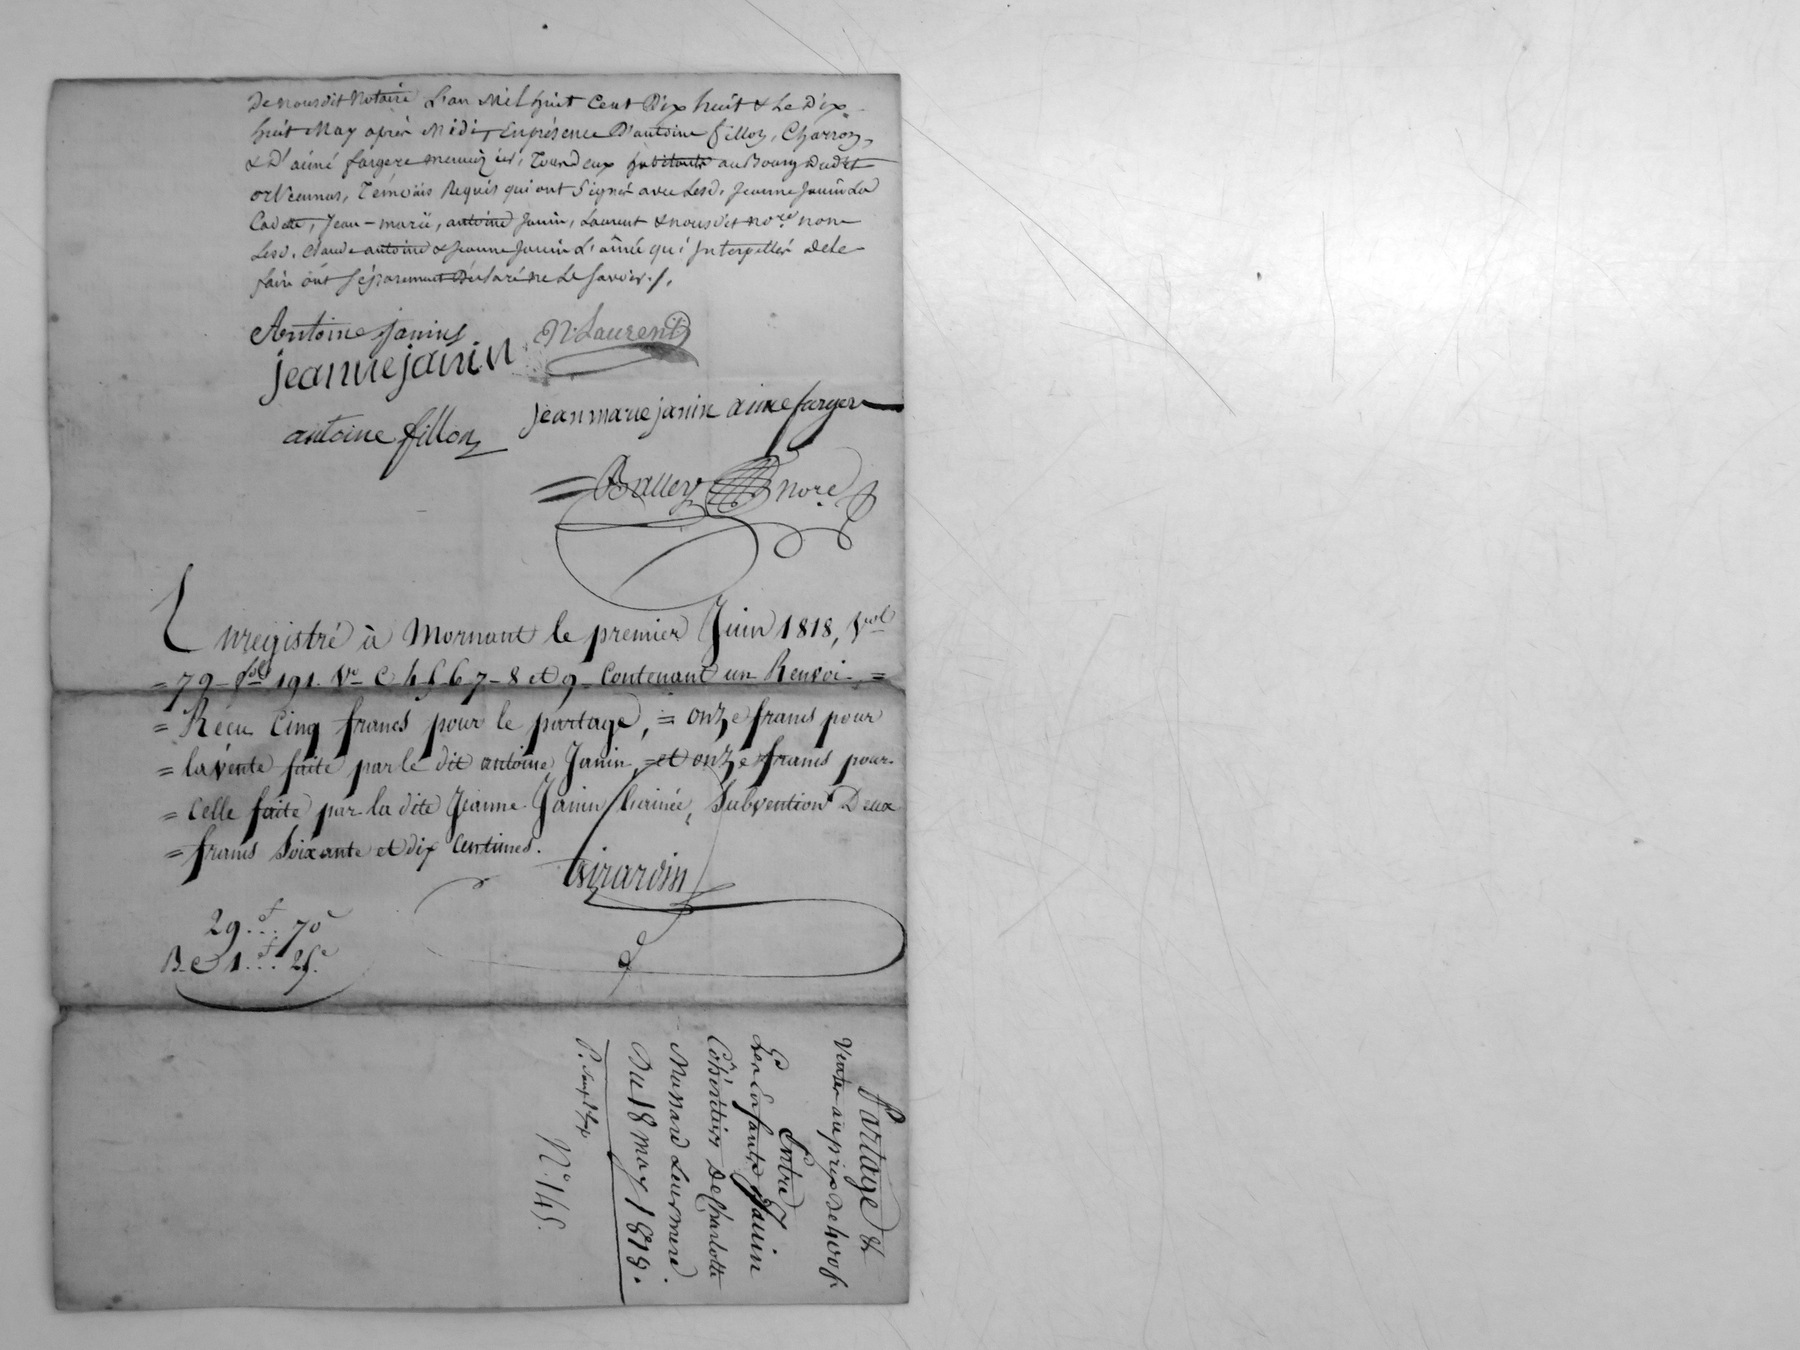 De nousdit Notaire L'an Mil huit Cent Dix huit & Le Dix
huit May après Midi, En présence D'antoine fillon, Charron,
& D'aimé fargere menuizier, Tous deux habitants au Bourg Dudit
orlienas, Témoins Requis qui ont Signé avec Lesd. Jeanne Janin La
Cadette, Jean-marie, antoine Janin, Laurent & nousdit no.re non
Lesd. Claude antoine & Jeanne Janin L'aînée qui Interpellés de le
faire ont Séparement Déclaré ne Le Savoir./.
Antoine janin
N. Laurent
jeannejanin
jean marie janin aime farger
antoine fillon
= Balley nore.
Enregistré à Mornant le premier Juin 1818, Vol
= 79 - fol 191. Vo C 4 5 6 7 - 8 et 9 - Contenant un Renvoi - =
= Récu Cinq francs pour le partage, = onze francs pour
= la vente faite par le dit antoine Janin, = et onze francs pour
= Celle faite par la dite Jeanne Janin l'ainée, Subvention Deux
= francs Soixante et dix Centimes.
Girardin
29.f.. 70
B. e 1.f... 25c.
Partage &
Ventes au prix de 400f
Entre
Les Enfants Janin
Cohéritiers De Charlotte
Mussard Leur mere
Du 18 may 1818.
No. 145.